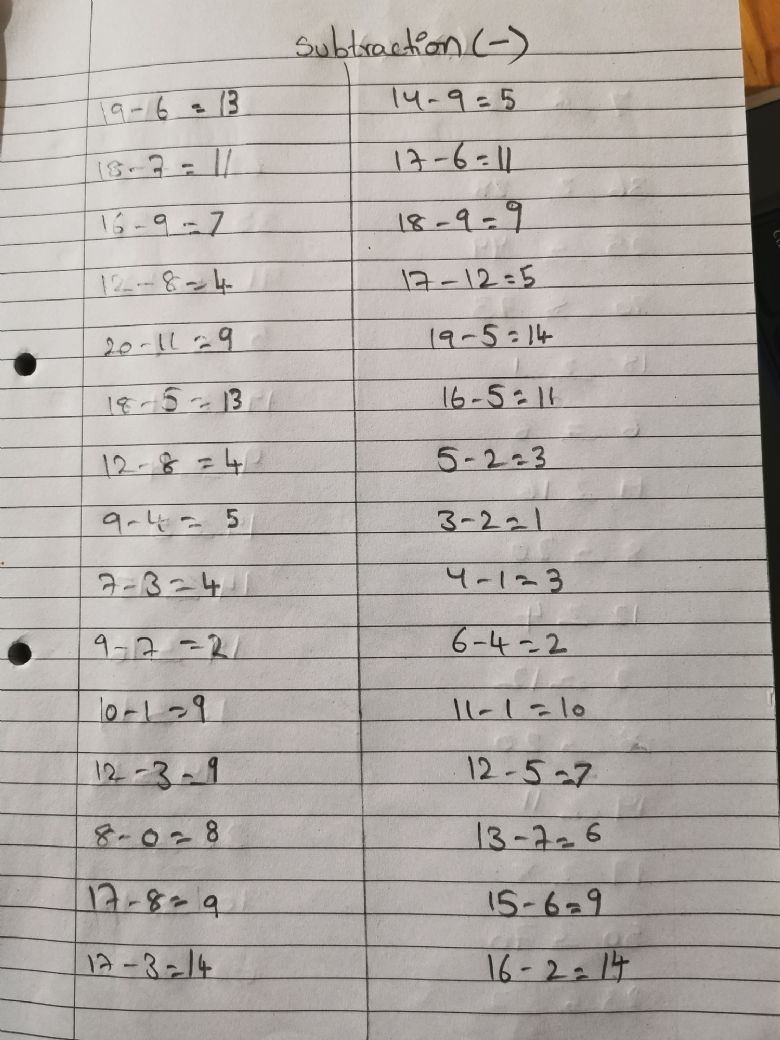 Subtraction (-)
19-6 = 13
18-7 = 11
16-9 = 7
12-8=4
20-11=9
18-5=13
12-8=4
9-4= 5
7-3=4
9-7=2
10-1=9
12-3=9
8-0=8
17-8=9
17-3=14
14-9=5
17-6=11
18-9=9
17-12=5
19-5=14
16-5=11
5-2=3
3-2=1
4-1=3
6-4=2
11-1=10
12-5=7
13-7=6
15-6=9
16-2=14